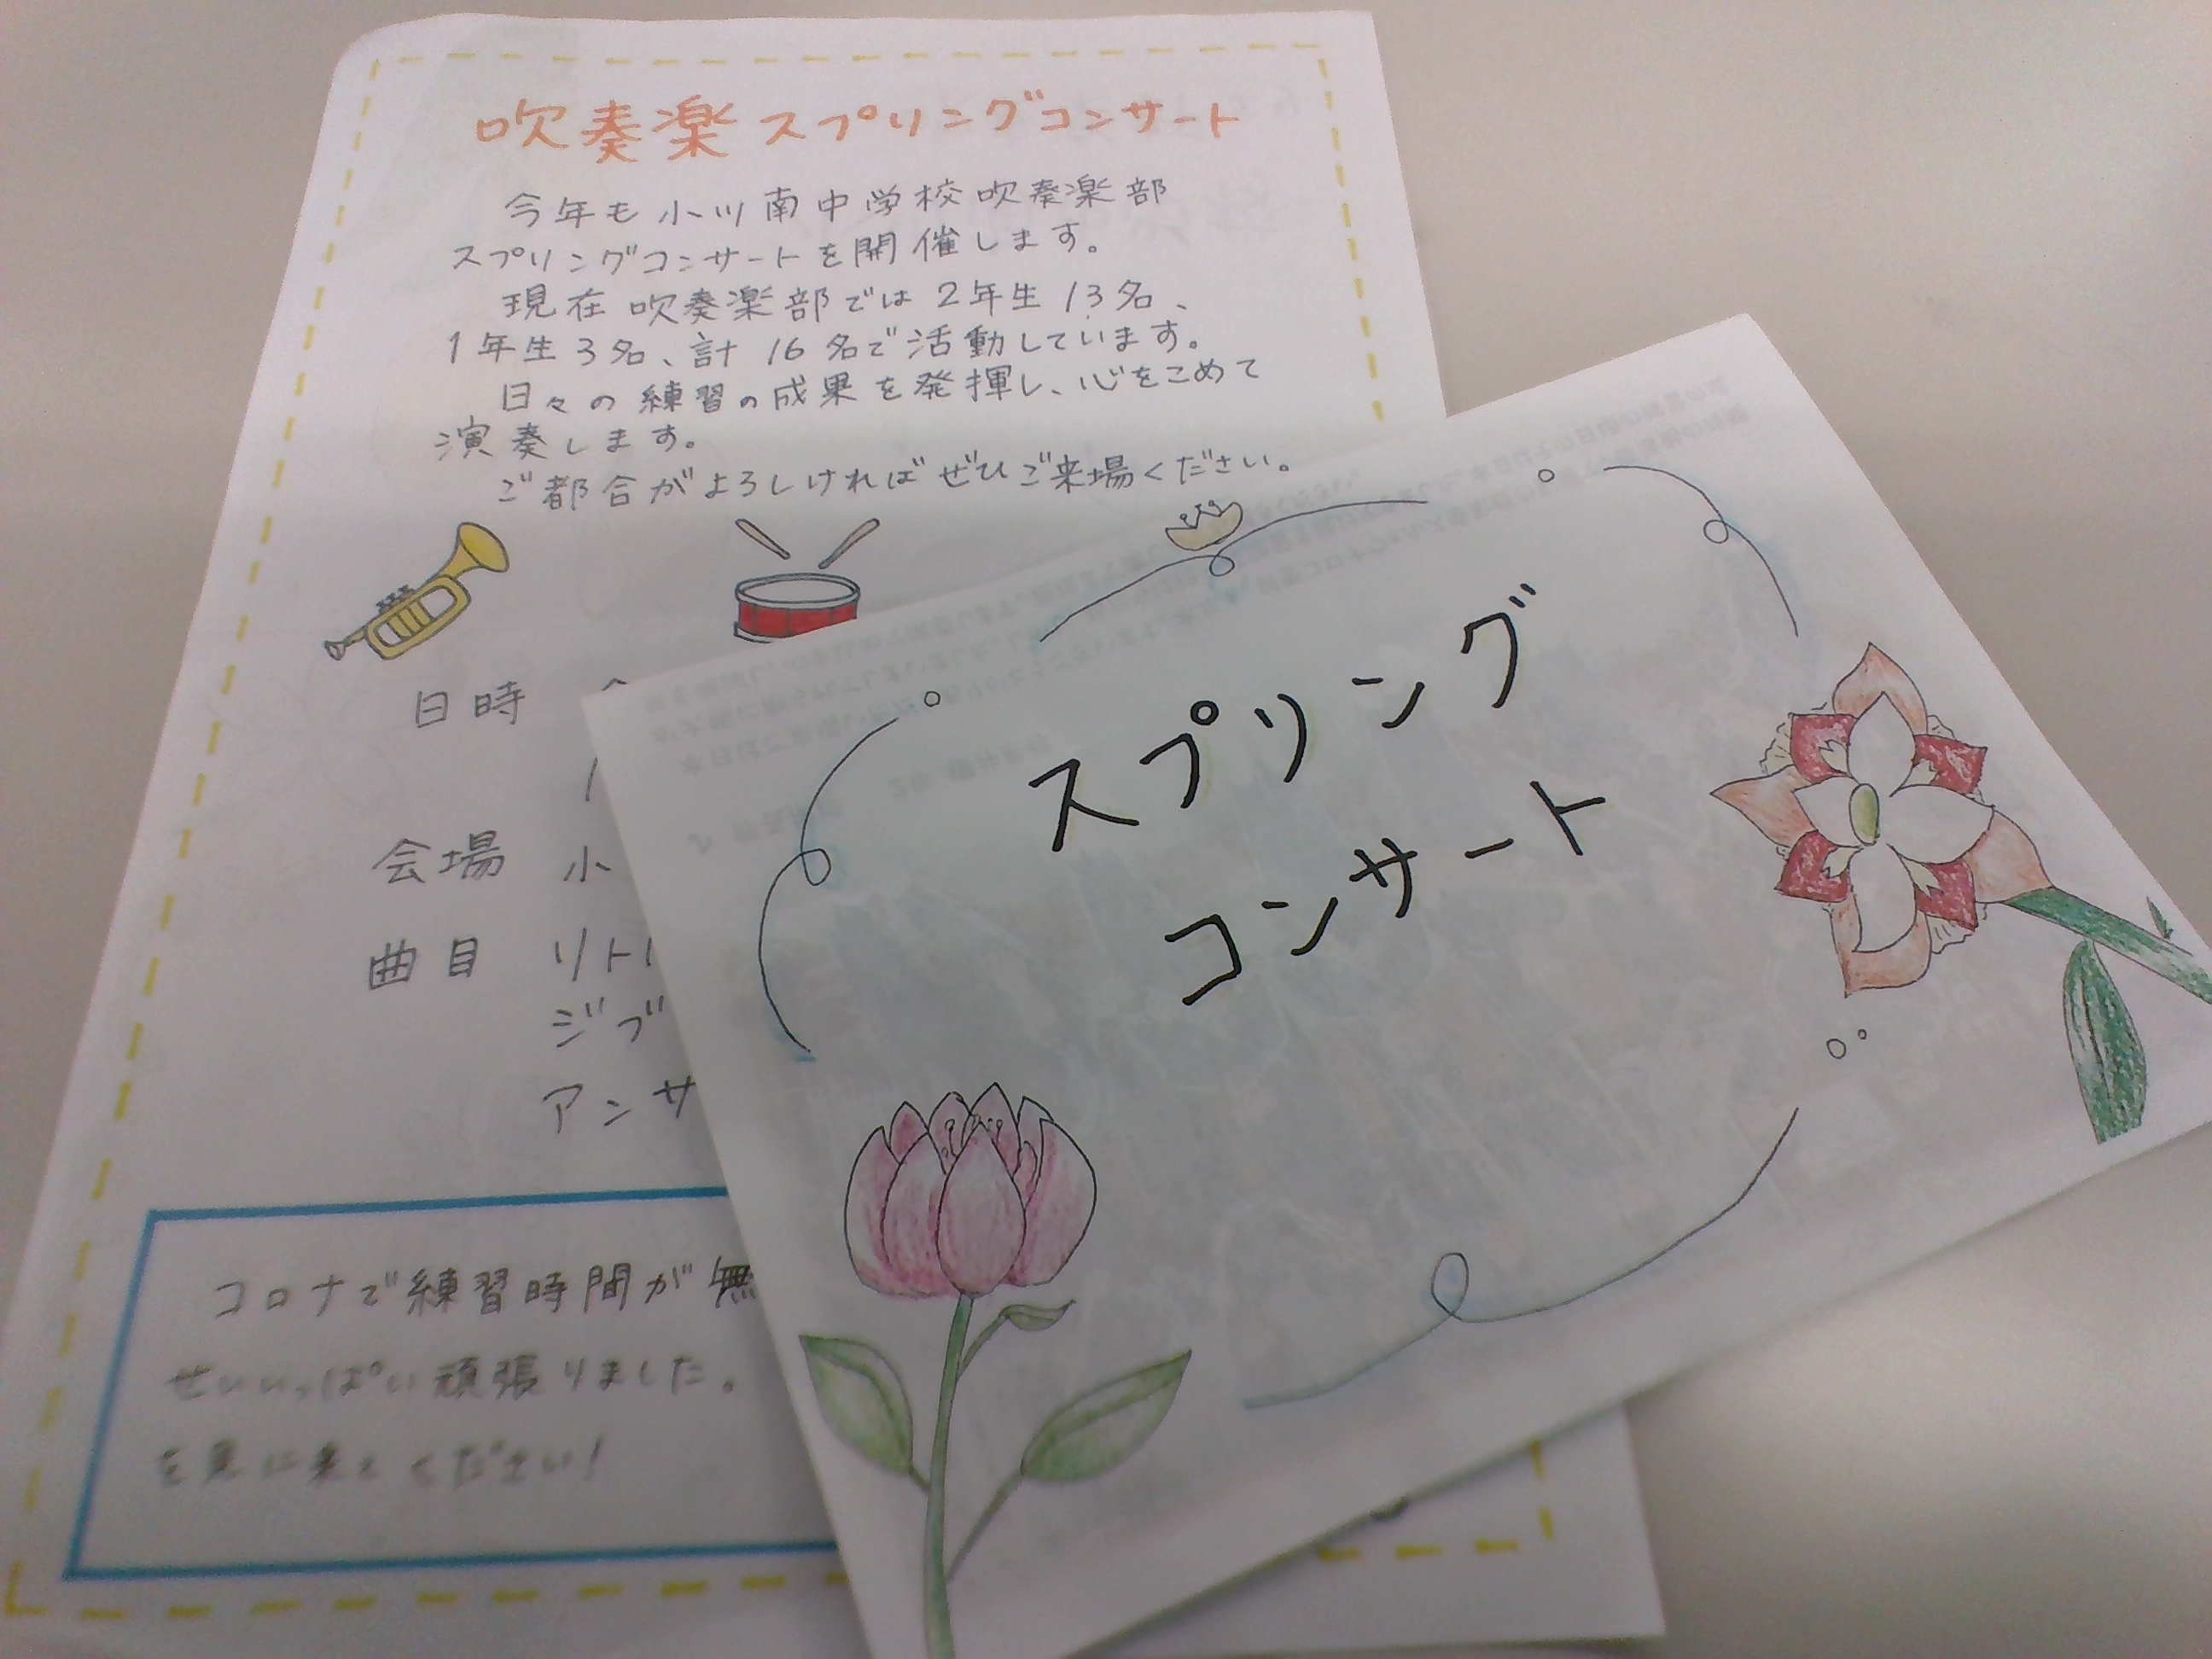 吹奏楽スプリングコンサート
今年も小川南中学校吹奏楽部
スプリングコンサートを開催します。
現在吹奏楽部では2年生13名、
1年生3名、計16名で活動しています。
日々の練習の成果を発揮し、心をこめて
演奏します。
ご都合がよろしければぜひご来場ください。
日時
会場 小
曲目 リト
ジブ
アンサ
コロナで練習時間が無
せいいっぱい頑張りました。
を見に来てください!
スプリング
コンサート